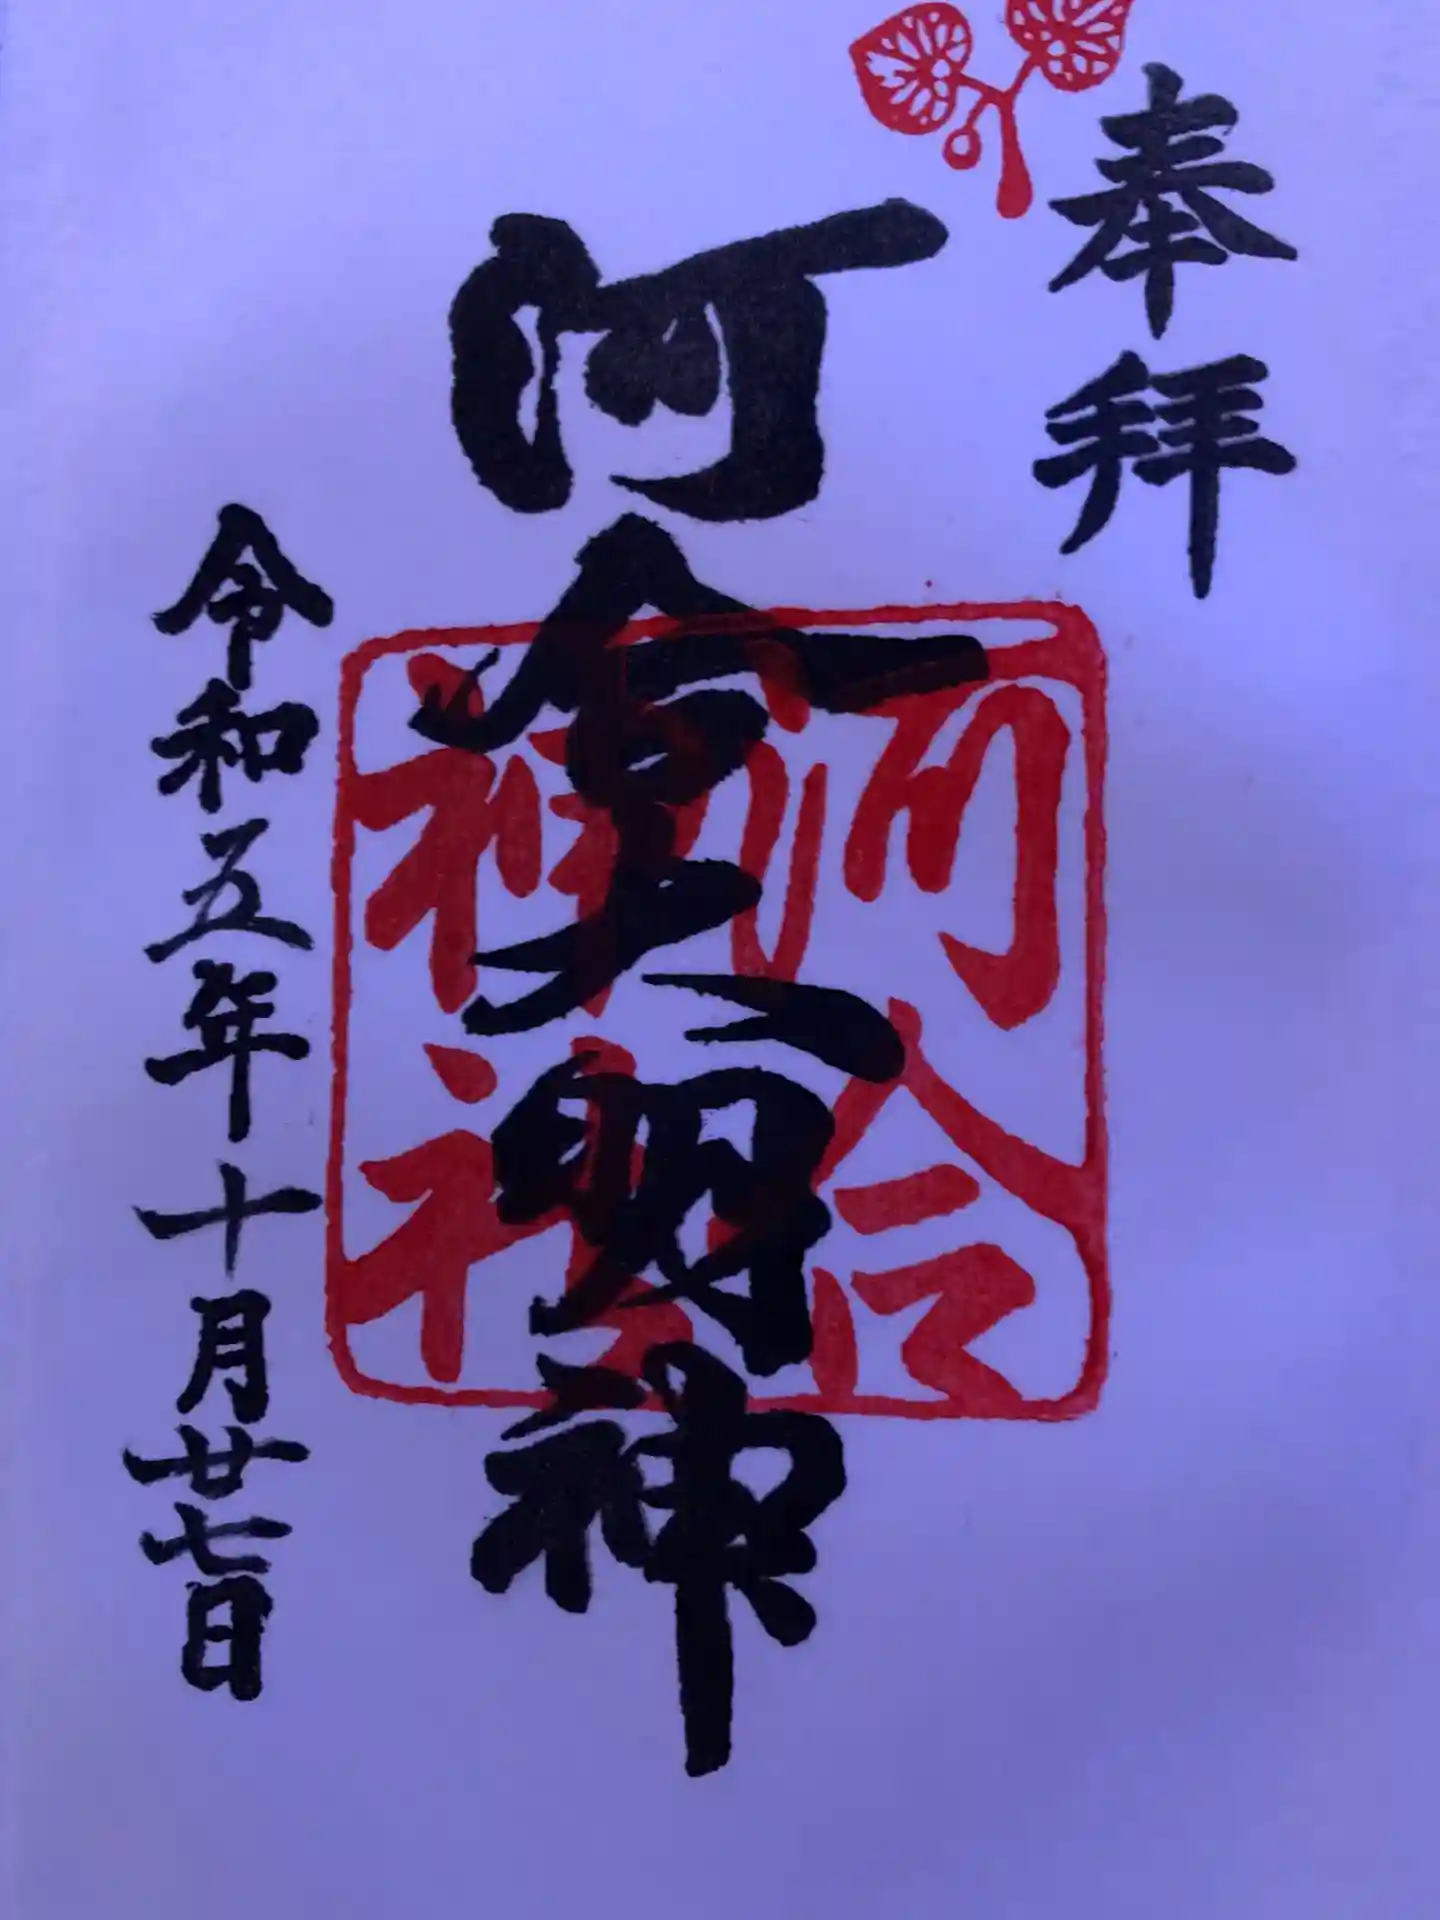 奉拝
河合大明神
河合神社
令和五年十月廿七日